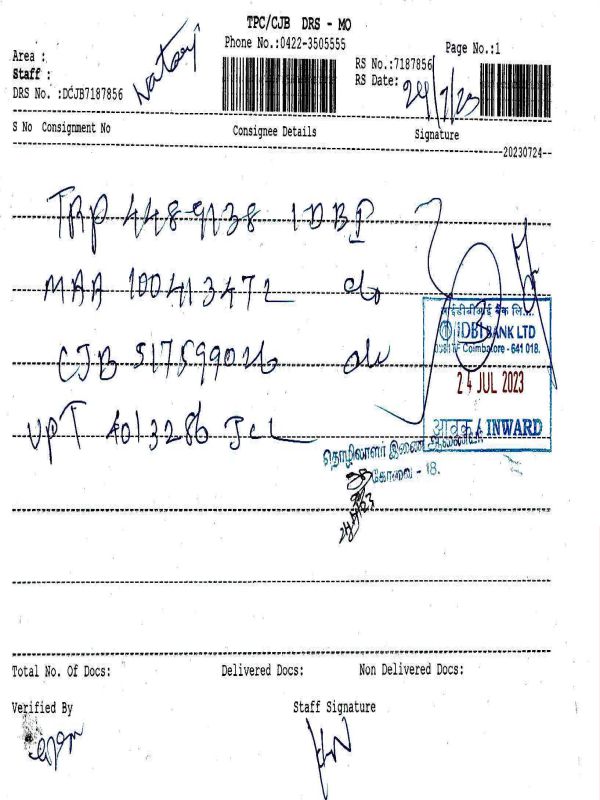 TPC/CJB DRS - MO
Phone No.:0422-3505555
Page No.:1
Area :
Staff :
DRS No. :DCJB7187856
RS No.:7187856
RS Date: 24/7/23
S No Consignment No Consignee Details Signature
20230724
TRP 448-9138 IDBI
MAA 100413472 do
CJB 517599026 do
UPT 4013286 JCL
आईडीबीआई बैंक लि.
IDBI BANK LTD
Coimbatore - 641 018.
24 JUL 2023
आवक / INWARD
தொழிலாளர் இணை ஆணையர்
கோவை - 18.
Total No. Of Docs: Delivered Docs: Non Delivered Docs:
Verified By Staff Signature